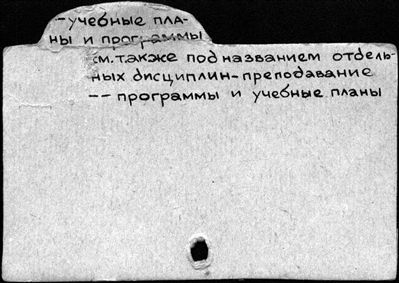 -учебные пла-
ны и программы
см. также под названием отдель-
ных дисциплин-преподавание
-- программы и учебные планы